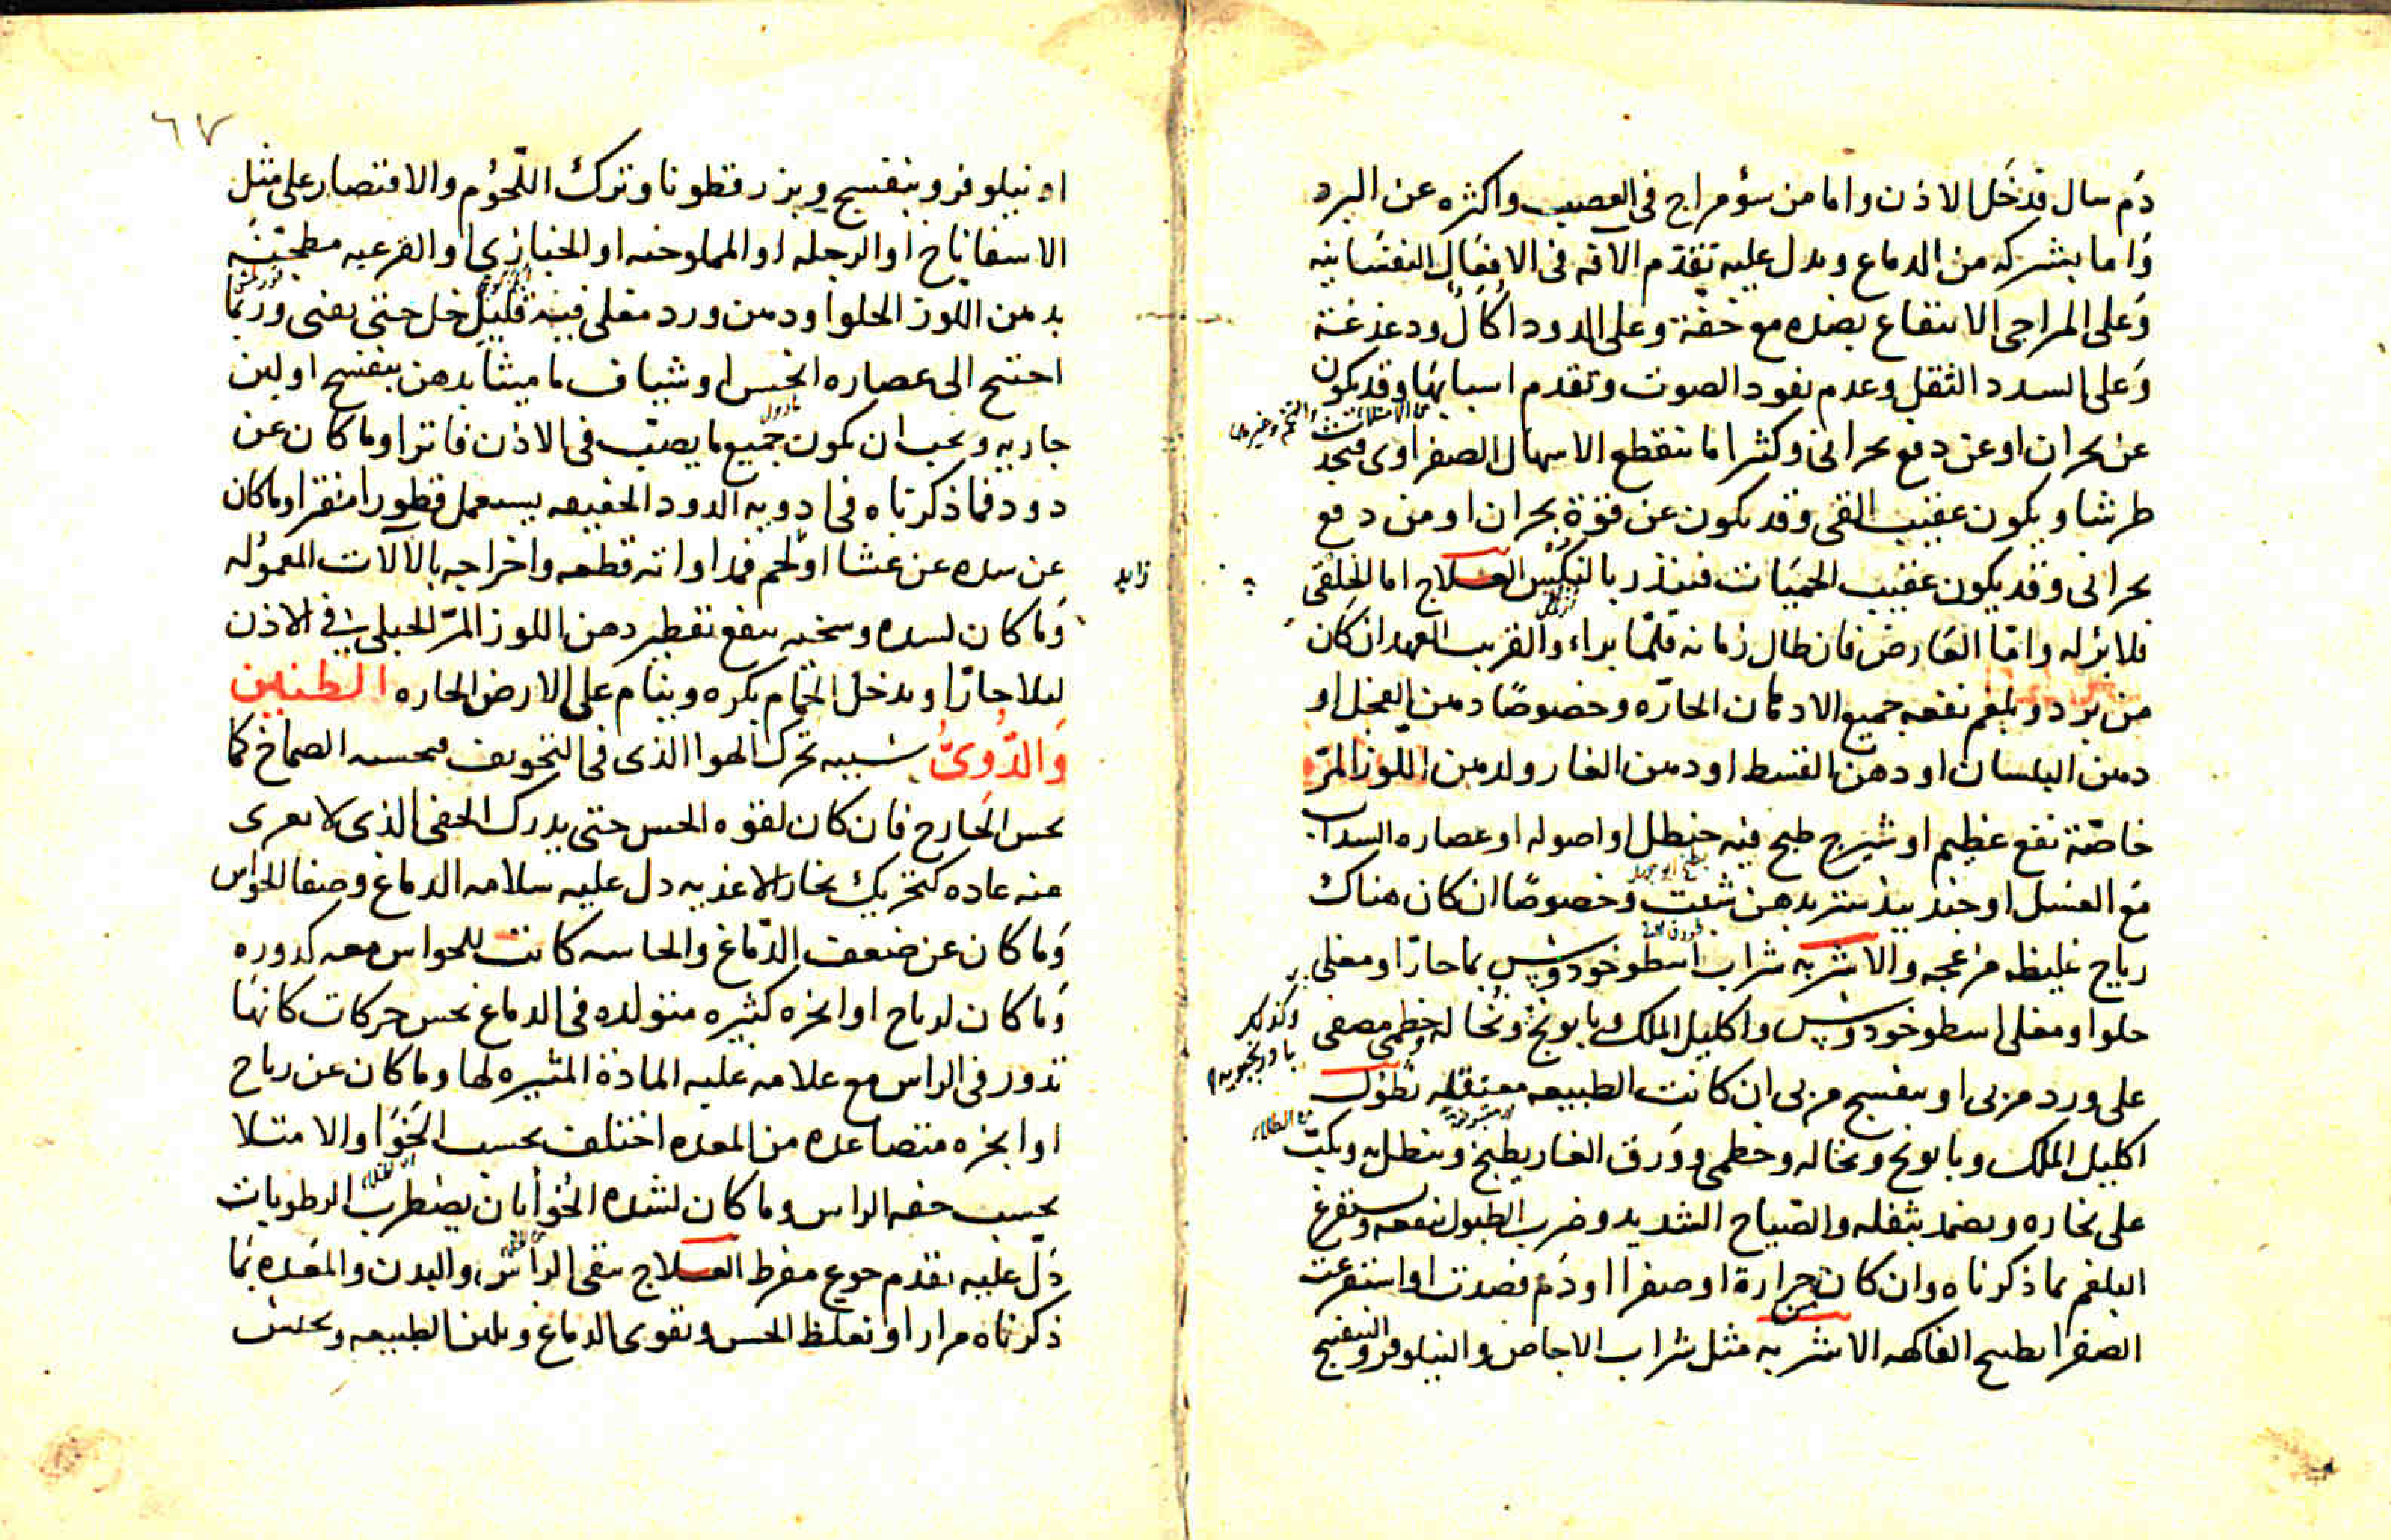 دم سال فدخل الاذن واما من سؤ مزاج فى العصب واكثره عن البرد
واما بشركه من الدماغ ويدل عليه تقدم الآفه فى الافعال النفسانيه
وعلى المزاجى الانتفاع بضده مع خفة وعلى الدود اكال ودغدغة
وعلى السدد الثقل وعدم نفود الصوت وتقدم اسبابها وقد يكون
من الامتلاآت والتخم وغيرها
عن بحران او عن دفع بحرانى وكثيرا ما ينقطع الاسهال الصفراوى فيجد
طرشا ويكون عقيب القى وقد يكون عن قوة بحران او من دفع
بحرانى وقد يكون عقيب الحميات فينذر بالنكس العلاج اما الخلقى
فلا بر له واما العارض فان طال زمانه قلما براء والقريب العهد ان كان
من برد وبلغم نفعه جميع الادهان الحارّه وخصوصًا دهن الفجل او
دهن البلسان او دهن القسط او دهن الغار ولدهن اللوز المرّ
خاصّة نفع عظيم او شيرج طبخ فيه حنظل او اصوله او عصاره السداب
مع العسل او جندبيدستر بدهن شبت وخصوصًا ان كان هناك
رياح غليظه مزعجه والاشربه شراب اسطوخودوس بما حارّ او مغلى
حلوا ومغلى اسطوخودوس واكليل الملك وبابونج ونخاله وخطمى مصفى
وكذلك
بادرنجبويه
على ورد مربى او بنفسج مربى ان كانت الطبيعه معتقله نطول
اكليل الملك وبابونج ونخاله وخطمى وورق الغار يطبخ وينطل به ويكبّ
على بخاره ويضمد بثفله والصّياح الشديد وضرب الطبول ينفعه ويستفرغ
البلغم بما ذكرناه وان كان من حرارة او صفرا او دم فصدت او استفرغت
الصفرا بطبيخ الفاكهه الاشربه مثل شراب الاجاص والنيلوفر والبنفسج
٦٧
او نيلوفر وبنفسج وبزر قطونا وترك اللّحوُم والاقتصار على مثل
الاسفاناخ او الرجله او الملوخيه او الخبازى او القرعيه مطجّنه
بدهن اللوز الحلو او دهن ورد مغلى فيه قليل خل حتى يفنى وربما
احتيج الى عصاره الخس او شياف ماميثا بدهن بنفسج او لبن
جاريه ويجب ان يكون جميع ما يصبّ فى الاذن فاترا وما كان عن
دود فما ذكرناه فى ادويه الدود الخفيفه يستعمل قطورا منقرا وما كان
عن سده عن غشا او لحم فمداواته قطعه واخراجه بالآلات المعموُله
زايد
وما كان لسده وسخيه ينفع تقطير دهن اللوز المرّ الجبلى فى الاذن
ليلا حارّا ويدخل الحمّام بكره وينام على الارض الحاره الطنين
والدّوىّ سببه تحرك الهوا الذى فى التجويف فيحسه الصماخ كما
يحس الخارج فان كان لقوه الحس حتى يدرك الخفى الذى لا يعرى
عنه عاده كتحريك بخار الاغذيه دل عليه سلامه الدماغ وصفا الحواس
وما كان عن ضعف الدّماغ والحاسه كانت للحواس معه كدوره
وما كان لرياح او ابخره كثيره متولده فى الدماغ يحس حركات كانها
تدور فى الراس مع علامه غلبه المادة المثيره لها وما كان عن رياح
او ابخره متصاعده من المعده اختلف بحسب الخَوَا والامتلا
بحسب خفه الراس وما كان لشده الخوا بان يضطرب الرطوبات
دلّ عليه تقدم جوع مفرط العلاج ينقى الراس والبدن والمعده بما
ذكرناه مرارا وتغلظ الحس وتقوى الدماغ وتلين الطبيعه ويحتنب